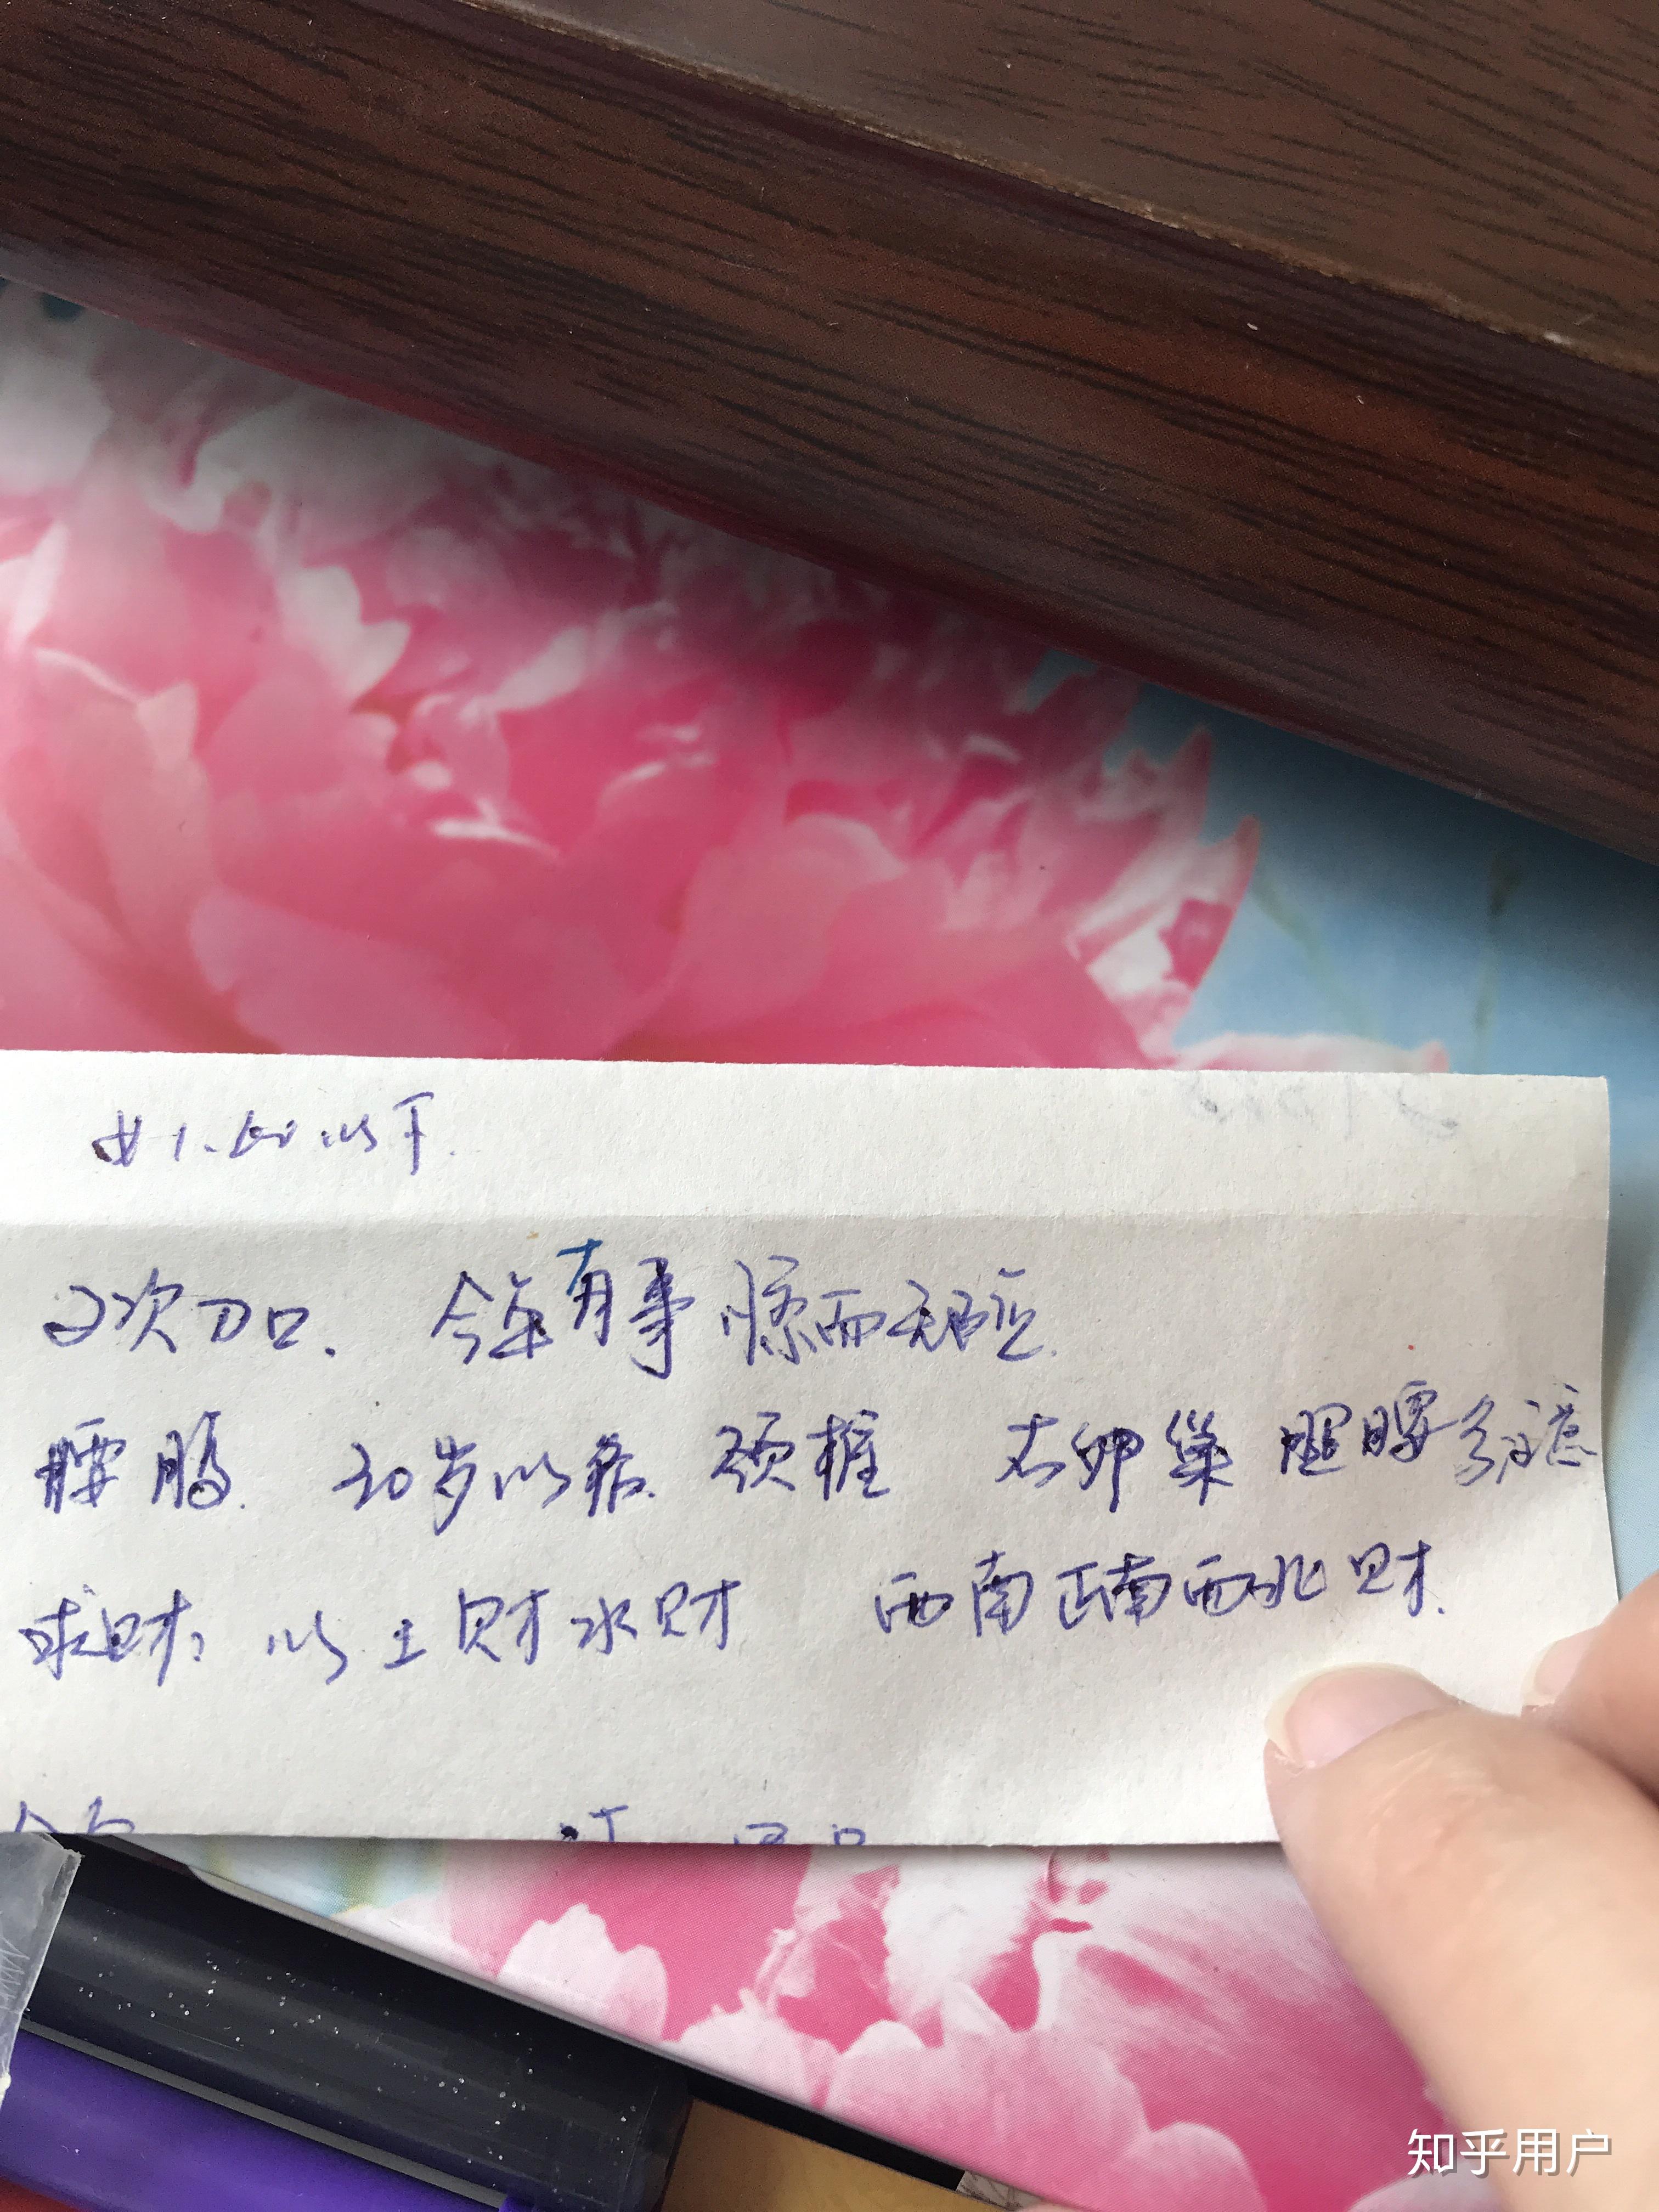 以下.
2次刀口. 今年有事 惊而无险.
腰肠. 30岁以后. 颈椎 右卵巢 胆腰多注意
求财: 以土财水财 西南正南西北财.
知乎用户